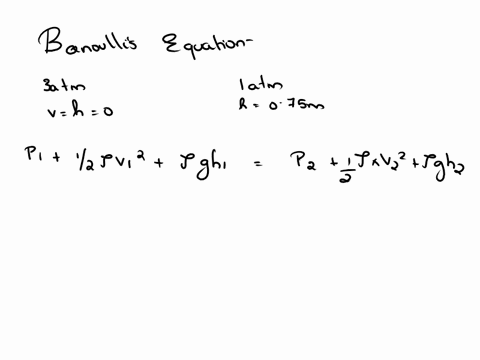 Banoulli's Equation-
3atm 1atm
v = h = 0 h = 0.75m
P₁ + 1/2 ρv₁² + ρgh₁ = P₂ + 1/2 ρ×v₂² + ρgh₂